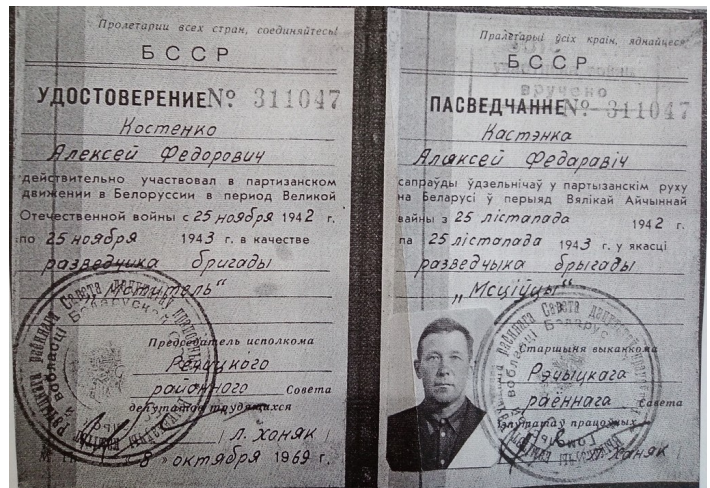 Пролетарии всех стран, соединяйтесь!
БССР
УДОСТОВЕРЕНИЕ № 311047
Костенко
Алексей Федорович
действительно участвовал в партизанском
движении в Белоруссии в период Великой
Отечественной войны с 25 ноября 1942 г.
по 25 ноября 1943 г. в качестве
разведчика бригады
„Мститель“
Председатель исполкома
Речицкого
районного Совета
депутатов трудящихся
Л. Ханяк
„8“ октября 1969 г.
Пралетарыі ўсіх краін, яднайцеся
БССР
вручено
ПАСВЕДЧАННЕ № 311047
Кастэнка
Аляксей Федаравіч
сапраўды ўдзельнічаў у партызанскім руху
на Беларусі ў перыяд Вялікай Айчыннай
вайны з 25 лістапада 1942 г.
па 25 лістапада 1943 г. у якасці
разведчыка брыгады
„Мсціўцы“
Старшыня выканкома
Рэчыцкага
раённага Савета
дэпутатаў працоўных
Л. Ханяк